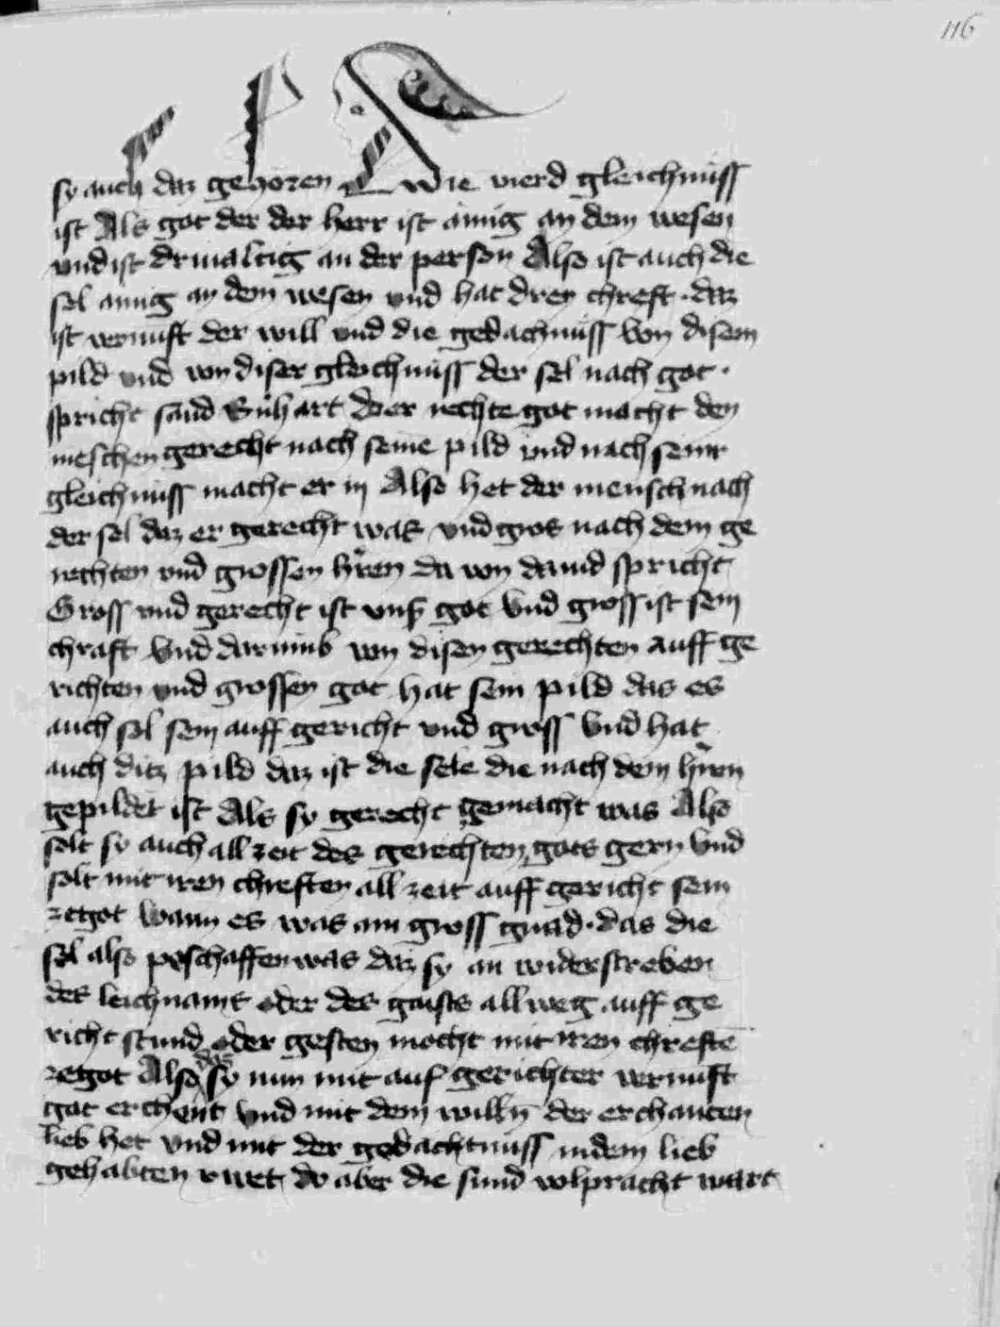 116
sy auch daz gehoren Die vierd gleichnuss
ist Als got der der herr ist ainig an dem wesen
vnd ist driualtig an der person Also ist auch die
sel ainig an dem wesen vnd hat drey chreft · daz
ist vernuft der will vnd die gedachnuss von disem
pild vnd von diser gleichnuss der sel nach got ·
spricht sand der rechte got macht den
meschen gerecht nach seinē pild vnd nach seinr
gleichnuss macht er in Also het der mensch nach
der sel daz er gerecht was vnd gros nach dem ge
rechten vnd grossen hren da von dauid spricht
Gross vnd gerecht ist vnser got vnd gross ist sein
chraft vnd darumb von disen gerechten auff ge
richten vnd grossen got hat sein pild das es
auch sol sein auff gericht vnd gross vnd hat
auch ditz pild daz ist die sele die nach dem hren
gepildet ist Als sy gerecht gemacht was Also
solt sy auch all zeit des gerechten gots gern vnd
solt mit iren chreften all zeit auff gericht sein
zegot wann es was ain gross gnad · das die
sel also peschaffen was daz sy an widerstreben
des leichnams oder des gaists allweg auff ge
richt stund oder gesten mocht mit iren chreftē
zegot Also das sy nun mit auf gerichter vernuft
got erchent vnd mit dem willn der erchanten
lieb het vnd mit der gedachtnuss in dem lieb
gehabten ruet do aber die sund volpracht wart